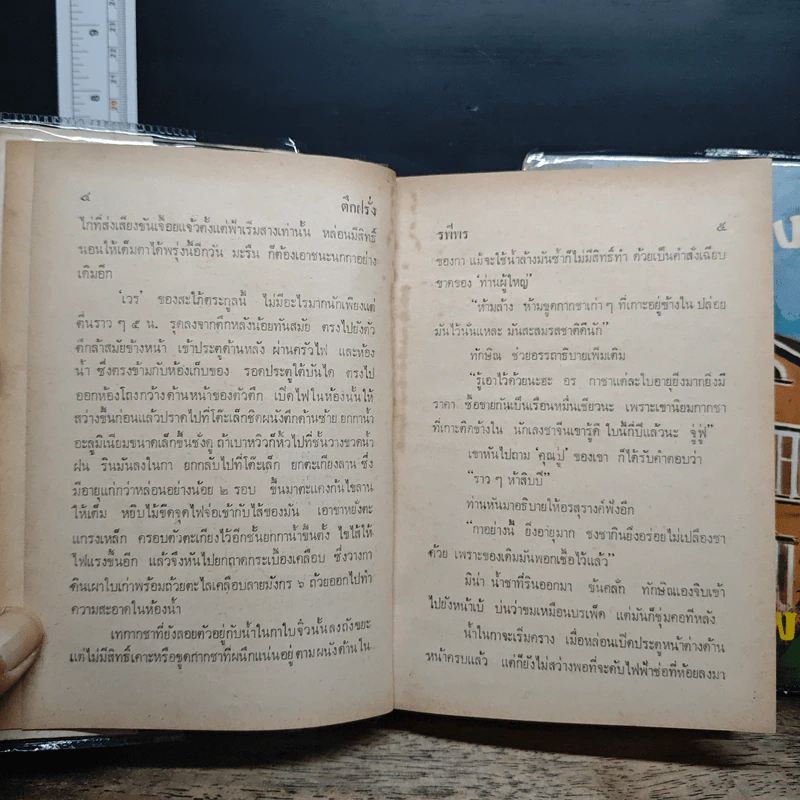 ๔
ตึกฝรั่ง
ไก่ที่ส่งเสียงขันเจื้อยแจ้วตั้งแต่ฟ้าเริ่มสางเท่านั้น หล่อนมีสิทธิ์
นอนให้เต็มตาได้พรุ่งนี้อีกวัน มะรืน ก็ต้องเอาชนะนกกาอย่าง
เดิมอีก
'เวร' ของสะใภ้ตระกูลนี้ ไม่มีอะไรมากนักเพียงแต่
ตื่นราว ๆ ๕ น. รุดลงจากตึกหลังน้อยทันสมัย ตรงไปยังตัว
ตึกล้าสมัยข้างหน้า เข้าประตูด้านหลัง ผ่านครัวไฟ และห้อง
น้ำ ซึ่งตรงข้ามกับห้องเก็บของ รอดประตูใต้บันได ตรงไป
ออกห้องโถงกว้างด้านหน้าของตัวตึก เปิดไฟในห้องนั้นให้
สว่างขึ้นก่อนแล้วปราดไปที่โต๊ะเล็กชิดผนังตึกด้านซ้าย ยกกาน้ำ
อะลูมิเนียมขนาดเล็กขึ้นชั่งดู ถ้าเบาหวิวก็หิ้วไปที่ชั้นวางขวดน้ำ
ฝน รินมันลงในกา ยกกลับไปที่โต๊ะเล็ก ยกตะเกียงลาน ซึ่ง
มีอายุแก่กว่าหล่อนอย่างน้อย ๒ รอบ ขึ้นมาตะแคงก้นไขลาน
ให้เต็ม หยิบไม้ขีดจุดไฟจ่อเข้ากับไส้ของมัน เอาขาหยั่งตะ
แกรงเหล็ก ครอบตัวตะเกียงไว้อีกชั้นยกกาน้ำขึ้นตั้ง ไขไส้ให้
ไฟแรงขึ้นอีก แล้วจึงหันไปยกถาดกระเบื้องเคลือบ ซึ่งวางกา
ดินเผาใบเก่าพร้อมถ้วยตะไลเคลือบลายมังกร ๖ ถ้วยออกไปทำ
ความสะอาดในห้องน้ำ
เทกากชาที่ยังลอยตัวอยู่กับน้ำในกาใบจิ๋วนั้นลงถังขยะ
แต่ไม่มีสิทธิ์เคาะหรือขูดกากชาที่ผนึกแน่นอยู่ตามผนังด้านใน
รพีพร
๕
ของกา แม้จะใช้น้ำล้างมันซ้ำก็ไม่มีสิทธิ์ทำ ด้วยเป็นคำสั่งเฉียบ
ขาดของ 'ท่านผู้ใหญ่'
"ห้ามล้าง ห้ามขูดกากชาเก่า ๆ ที่เกาะอยู่ข้างใน ปล่อย
มันไว้นั่นแหละ มันสะสมรสชาติดีนัก"
ทักษิณ ช่วยอรรถาธิบายเพิ่มเติม
"รู้เอาไว้ด้วยนะฮะ อร กาชาแต่ละใบอายุยิ่งมากยิ่งมี
ราคา ซื้อขายกันเป็นเรือนหมื่นเชียวนะ เพราะเขานิยมกากชา
ที่เกาะติดข้างใน นักเลงชาจีนเขารู้ดี ใบนี้กี่ปีแล้วนะ จู่ฟู่"
เขาหันไปถาม 'คุณปู่' ของเขา ก็ได้รับคำตอบว่า
"ราว ๆ ห้าสิบปี"
ท่านหันมาอธิบายให้อรสุรางค์ฟังอีก
"กาอย่างนี้ ยิ่งอายุมาก ชงชากินยิ่งอร่อยไม่เปลืองชา
ด้วย เพราะของเดิมมันพอกเชื้อไว้แล้ว"
มิน่า น้ำชาที่รินออกมา ข้นคลั่ก ทักษิณเองจิบเข้า
ไปยังหน้าเบ้ บ่นว่าขมเหมือนบรเพ็ด แต่มันก็ชุ่มคอทีหลัง
น้ำในกาจะเริ่มคราง เมื่อหล่อนเปิดประตูหน้าต่างด้าน
หน้าครบแล้ว แต่ก็ยังไม่สว่างพอที่จะดับไฟฟ้าช่อที่ห้อยลงมา